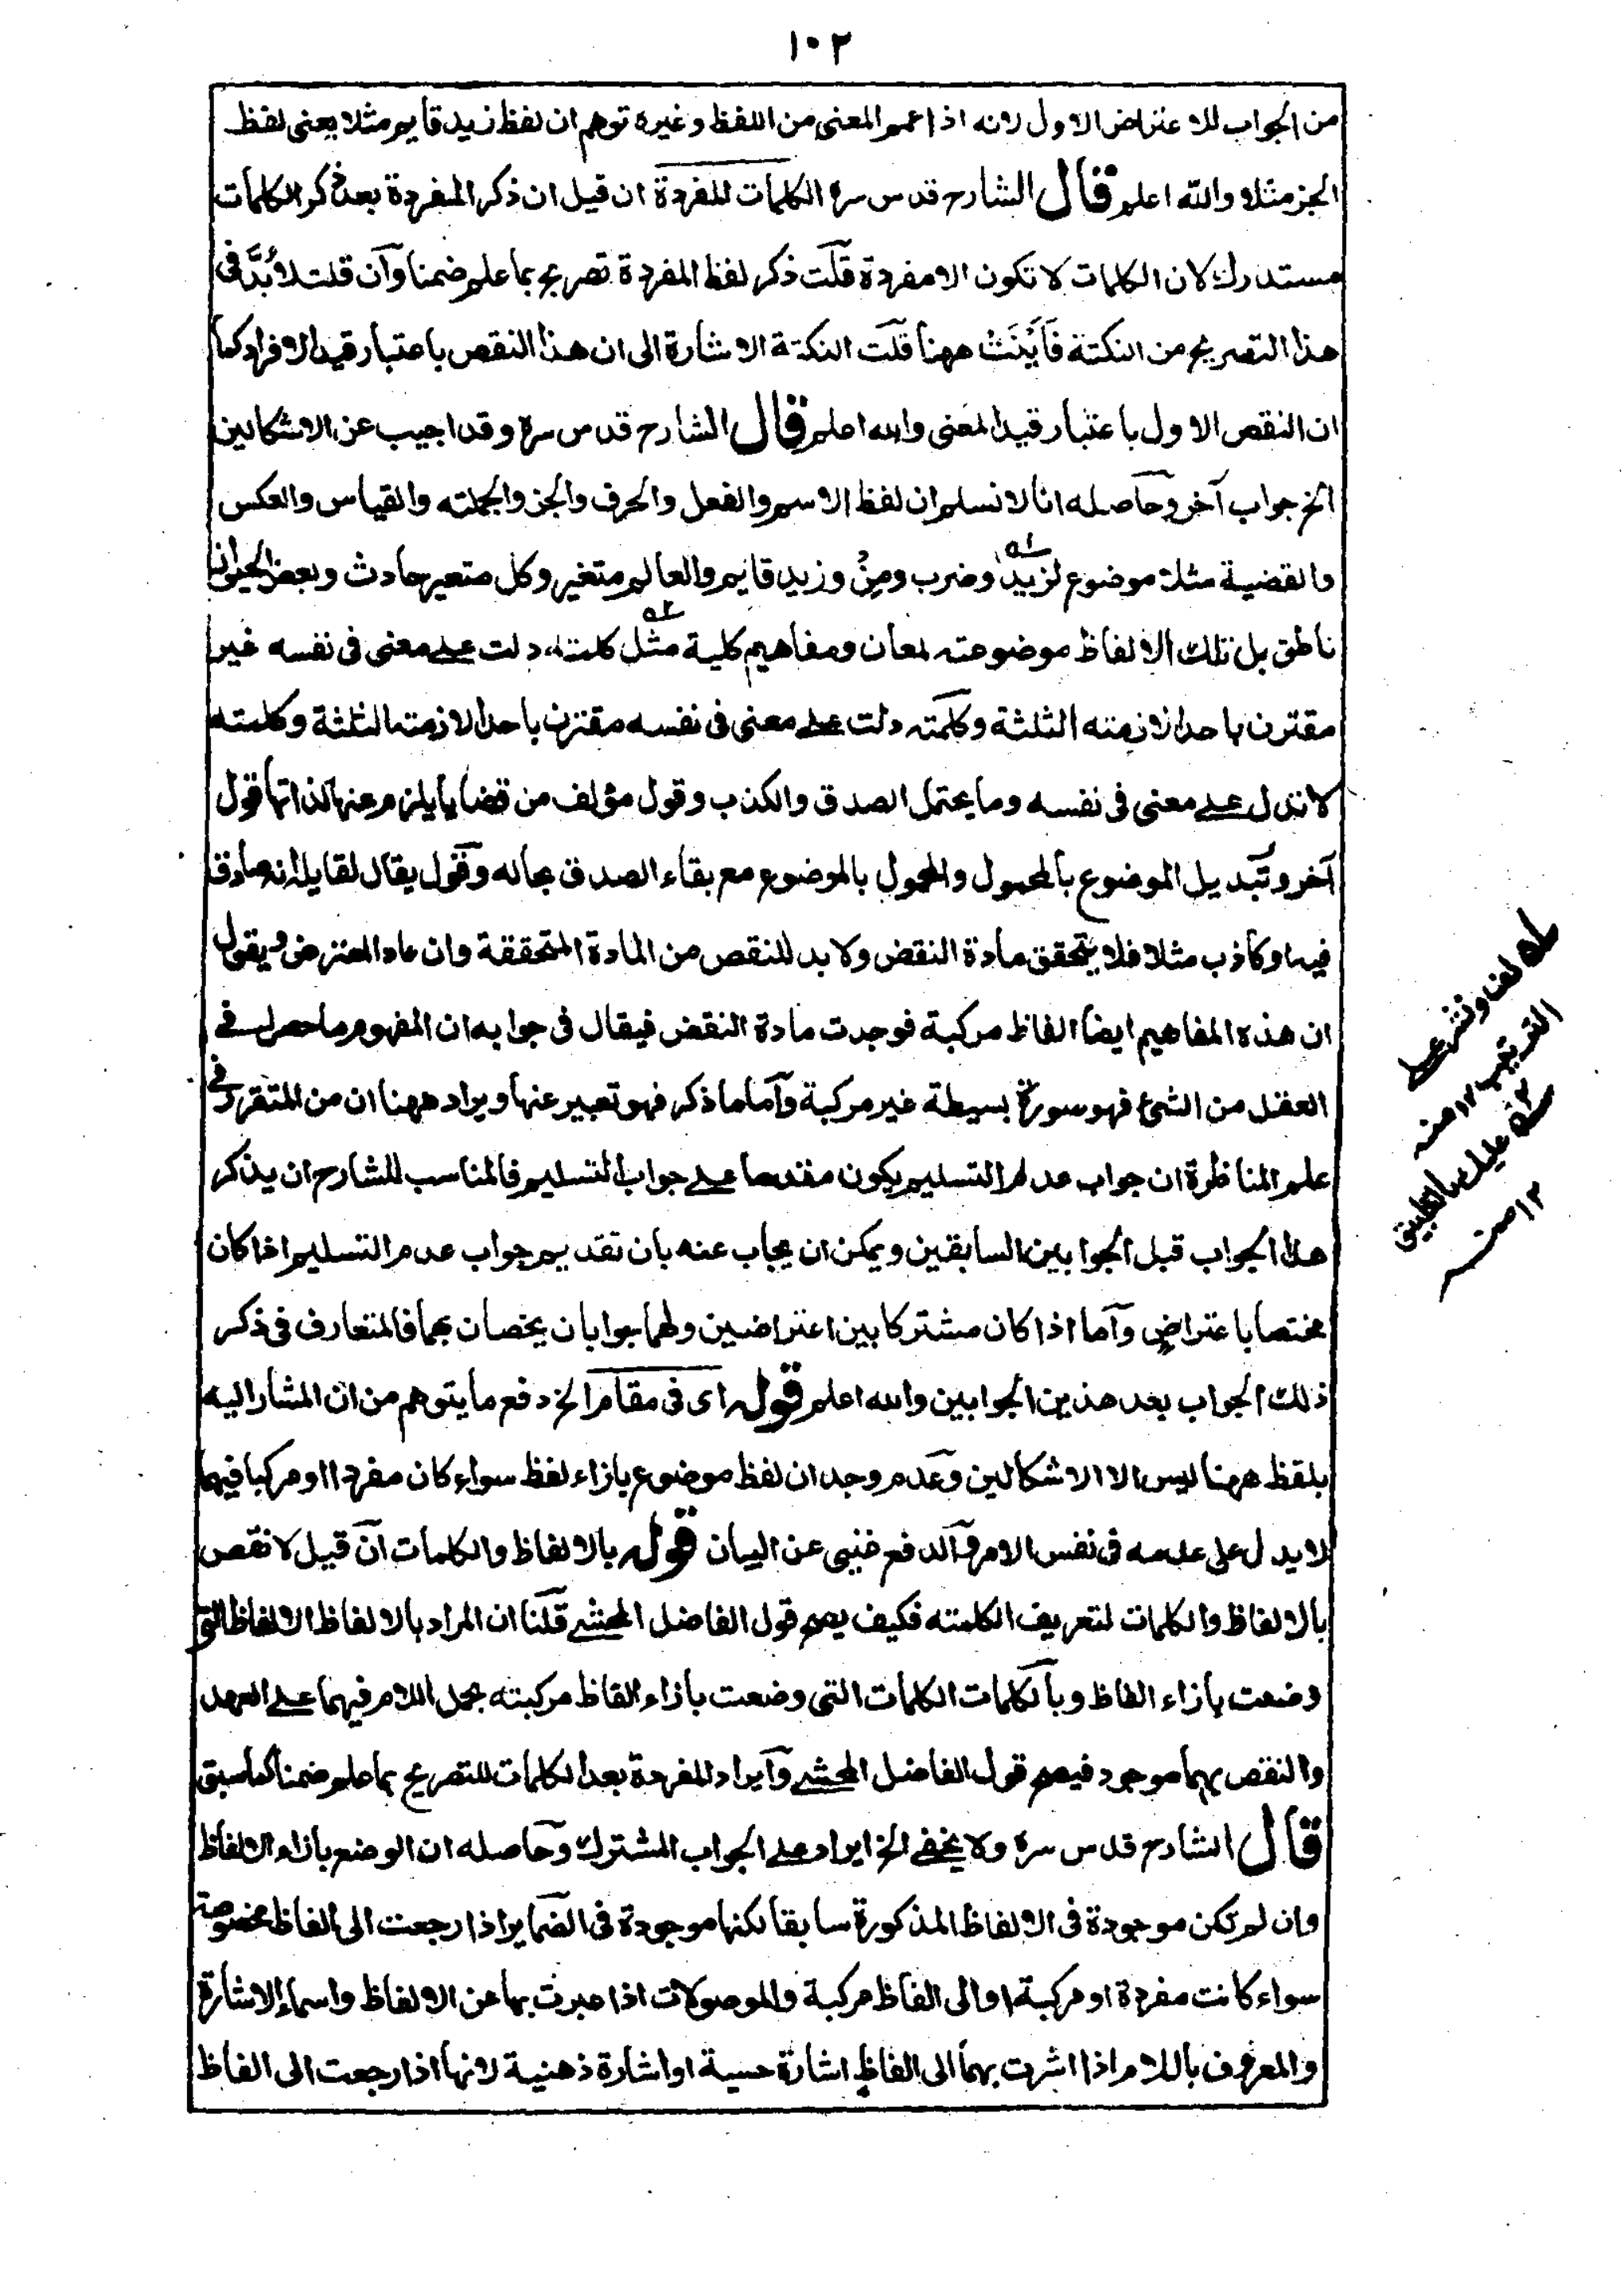 ١٠٢
من الجواب للاعتراض الاول لانه اذا عمم المعنى من اللفظ وغيره توهم ان لفظ زيد قايم مثلا يعنى لفظ
الجز مثلا والله اعلم قال الشارح قدس سره الكلمات المفردة ان قيل ان ذكر المفردة بعد ذكر الكلمات
مستدرك لان الكلمات لا تكون الا مفردة قلت ذكر لفظ المفردة تصريح بما علم ضمنا وان قلت لا بُدَّ فى
هذا التصريح من النكتة فَأَيْنَتْ ههنا قلت النكتة الاشارة الى ان هذا النقص باعتبار قيد الافراد كما
ان النقص الاول باعتبار قيد المعنى والله اعلم قال الشارح قدس سره وقد اجيب عن الاشكالين
الخ جواب آخر وحاصله انا لا نسلم ان لفظ الاسم والفعل والحرف والجز والجملته والقياس والعكس
والقضية مثلا موضوع لزيد وضرب ومِنْ وزيد قايم والعالم متغير وكل متعير حادث وبعض الحيوان
ناطق بل تلك الالفاظ موضوعته لمعان ومفاهيم كلية مثل كلمته دلت على معنى فى نفسه غير
مقترن باحد الازمنه الثلثة وكلمته دلت على معنى فى نفسه مقترن باحد الازمته الثلثة وكلمته
لا تدل على معنى فى نفسه وما يحتمل الصدق والكذب وقول مؤلف من قضايا يلزم عنها لذاتها قول
آخر وتبديل الموضوع بالمحمول والمحمول بالموضوع مع بقاء الصدق بحاله وقول يقال لقايله انه صادق
فيه او كاذب مثلا فلا يتحقق مادة النقض ولا بد للنقص من المادة المتحققة وان عاد المعترض ويقول
ان هذه المفاهيم ايضا الفاظ مركبة فوجدت مادة النقض فيقال فى جوابه ان المفهوم ما حصل فى
العقل من الشئ فهو سورة بسيطة غير مركبة وآما ما ذكر فهو تعبير عنها ويراد ههنا ان من المتقرر فى
علم المناظرة ان جواب عدم التسليم يكون مقدما على جواب التسليم فالمناسب للشارح ان يذكر
هذا الجواب قبل الجوابين السابقين ويمكن ان يجاب عنه بان تقديم جواب عدم التسليم اذا كان
مختصا باعتراضٍ وآما اذا كان مشتركا بين اعتراضين ولهما جوابان يخصان بهما فالمتعارف فى ذكر
ذلك الجواب بعد هذين الجوابين والله اعلم قوله اى فى مقام الخ دفع ما يتوهم من ان المشار اليه
بلفظ ههنا ليس الا الاشكالين وعدم وجدان لفظ موضوع بازاء لفظ سواء كان مفردا او مركبا فيهما
لا يدل على عدمه فى نفس الامر والدفع غنيى عن البيان قوله بالالفاظ والكلمات ان قيل لا نقص
بالالفاظ والكلمات لتعريف الكلمته فكيف يصح قول الفاضل المحشے قلنا ان المراد بالالفاظ الالفاظ التى
وضعت بازاء الفاظ وبالكلمات الكلمات التى وضعت بازاء الفاظ مركبته بحمل اللام فيهما على العهد
والنقص بهما موجود فيصح قول الفاضل المحشے وآيراد المفردة بعد الكلمات للتصريح بما علم ضمنا كما سبق
قال الشارح قدس سره ولا يخفى الخ ايراد على الجواب المشترك وحاصله ان الوضع بازاء الالفاظ
وان لم تكن موجودة فى الالفاظ المذكورة سابقا لكنها موجودة فى الضماير اذا رجعت الى الفاظ مخصوصة
سواء كانت مفردة او مركبة او الى الفاظ مركبة والموصولات اذا عبرت بها عن الالفاظ واسماء الاشارة
والمعرف باللام اذا اشرت بهما الى الفاظٍ اشارة حسية او اشارة ذهنية لانها اذا رجعت الى الفاظ
لف ونشر على
الترتيب ١٢ منه
عليك بالتطبيق
١٢ منه